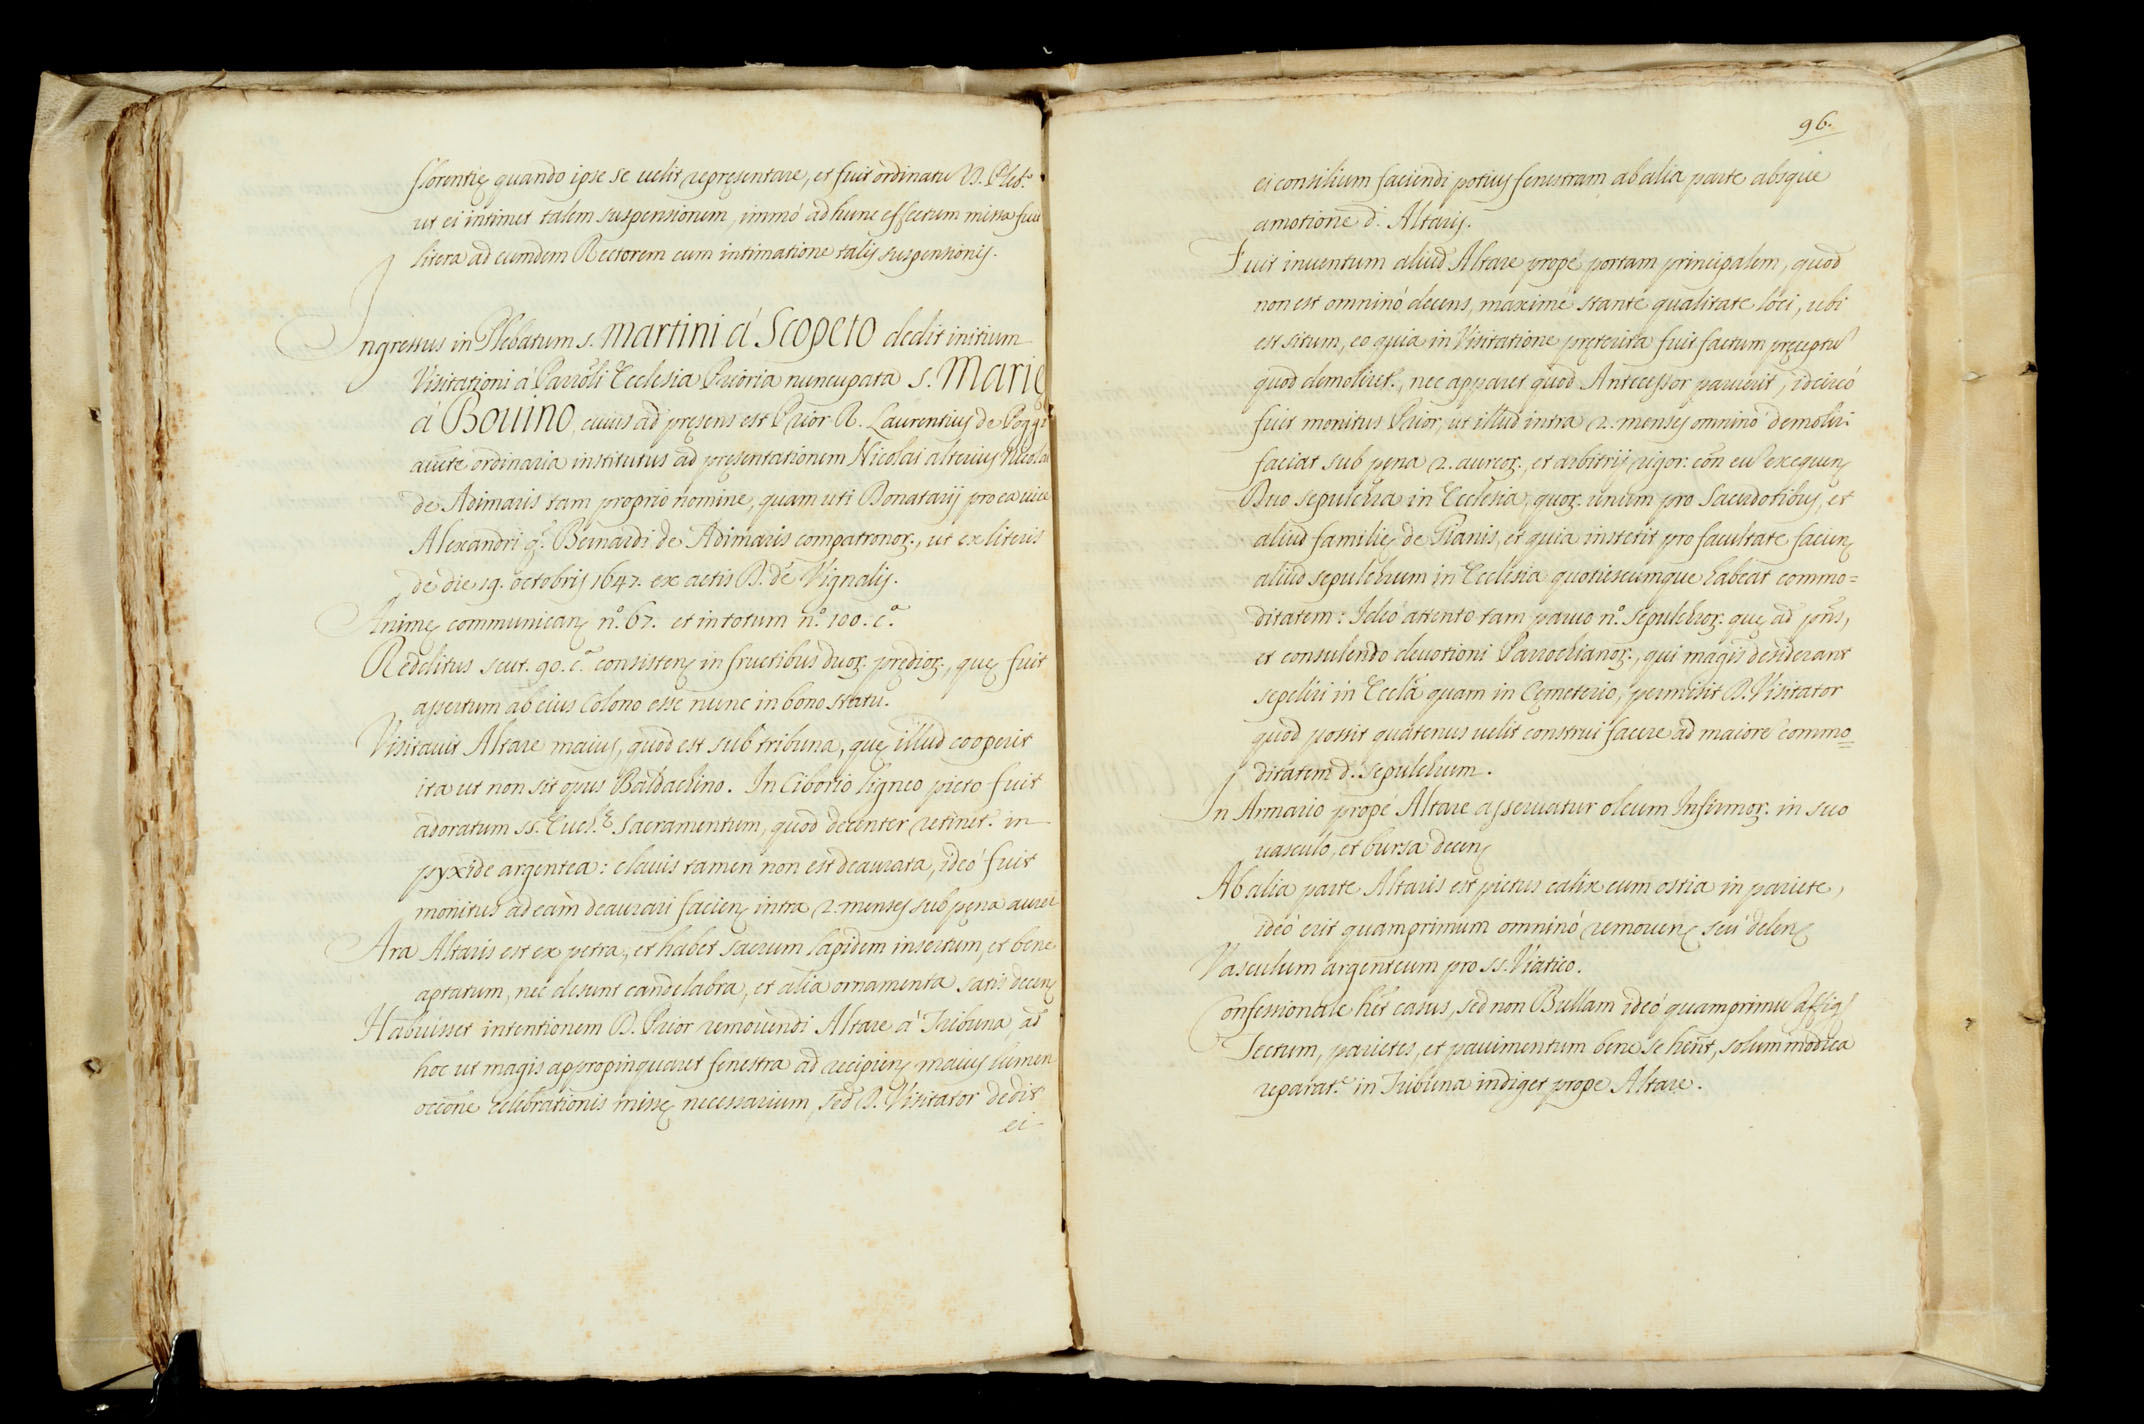 florentię quando ipse se uelit representare, et fuit ordinatũ D. Pleb.º
ut ei intimet talem suspensionem, immó ad hunc effectum missa fuit
litera ad eumdem Rectorem cum intimatione talis suspensionis.
Ingressus in Plebatum S. Martini á Scopeto dedit initium
Visitationi á Parrõli Ecclesia Prioria nuncupata S. Marię
á Bouino, cuius ad pręsens est Prior R. Laurentius de Poggi
aucte ordinaria institutus ad pręsentationem Nicolai alterius Nicolai
de Adimaris tam proprio nomine, quam uti Donatarij pro ea uice
Alexandri q. Bernardi de Adimaris compatronoꝝ., ut ex literis
de die 19. octobris 1647. ex actis D. de Vignalis.
Animę communicanę nº. 67. et in totum nº. 100. c.ª
Redditus scut. 90. c.ª consistenę in fructibus duoꝝ. prędioꝝ., quę fuit
assertum ab eius Colono esse nunc in bono statu.
Visitauit Altare maius, quod est sub tribuna, quę illud cooperit
ita ut non sit opus Baldachino. In Ciborio ligneo picto fuit
adoratum SS. Euch.ę Sacramentum, quod decenter retinet. in
pyxide argentea: clauis tamen non est deaurata, ideó fuit
monitus ad eam deaurari facienę intra 2. menses sub pęna aurei
Ara Altaris est ex petra, et habet sacrum lapidem insertum, et bene
aptatum, nec desunt candelabra, et alia ornamenta satis decenę
Habuisset intentionem D. Prior remouendi Altare á Tribuna, ad
hoc ut magis appropinquaret fenestra ad recipienę maius lumen
occõne celebrationis missę necessarium, sed D. Visitator dedit
ei
96.
ei consilium faciendi potius fenestram ab alia parte absque
amotione d. Altaris.
Fuit inuentum aliud Altare propé portam principalem, quod
non est omninó decens, maximé stante qualitate loci, ubi
est situm, eo quia in Visitatione pręterita fuit factum pręceptũ
quod demoliret., nec apparet quod Antecessor paruerit, idcircó
fuit monitus Prior, ut illud intra 2. menses omninó demoliri
faciat sub pena 2. aureoꝝ., et arbitrij rigor. cõn eũ exequenę
Duo sepulchra in Ecclesia, quoꝝ. unum pro Sacerdotibus, et
aliud familię de Pianis, et quia institit pro facultate facienę
aliud sepulchrum in Ecclesia quotiescumque habeat commo=
ditatem: Ideó attento tam paruo nº. sepulchroꝝ. quę ad pñs,
et consulendo deuotioni Parrochianoꝝ., qui magis desiderant
sepeliri in Ecclã quam in Cęmeterio, permisit D. Visitator
quod possit quatenus uelit construi facere ad maiorẽ commo=
ditatem d. sepulchrum.
In Armario propé Altare asseruatur oleum Infirmoꝝ. in suo
uasculo, et bursa decenę
Ab alia parte Altaris est pictus calix cum ostia in pariete,
ideó erit quamprimum omninó remouenę seú delenę
Vasculum argenteum pro SS. Viatico.
Confessionale hẽt casus, sed non Bullam ideó quamprimũ affigę
Tectum, parietes, et pauimentum bene se hẽnt, solum modica
reparat.e in Tribuna indiget prope Altare.